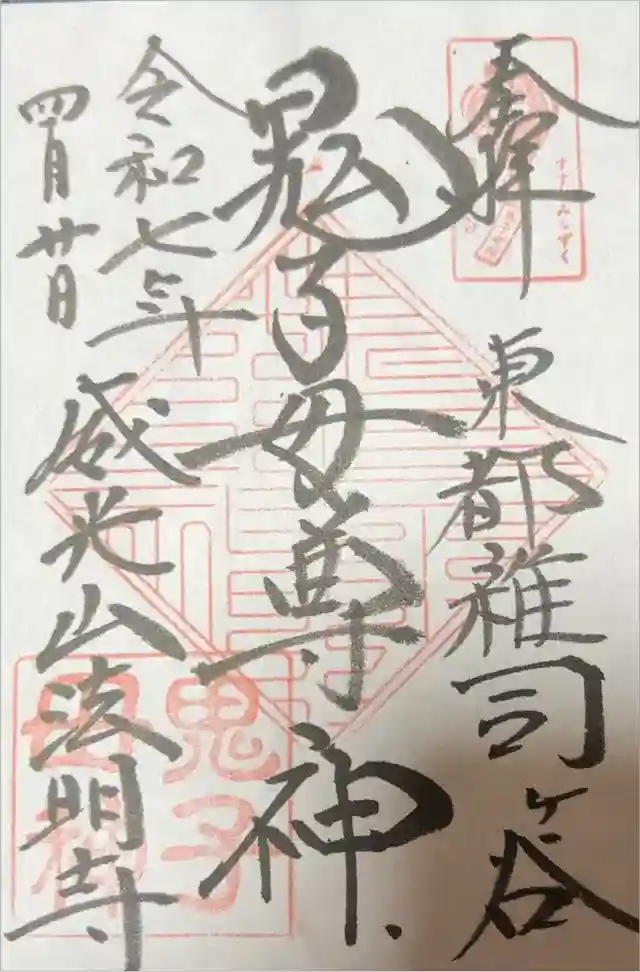 奉拝
すすきみゝずく
東都雑司ヶ谷
鬼子母尊神
令和七年
四月廿日
威光山法明寺
鬼子
母神